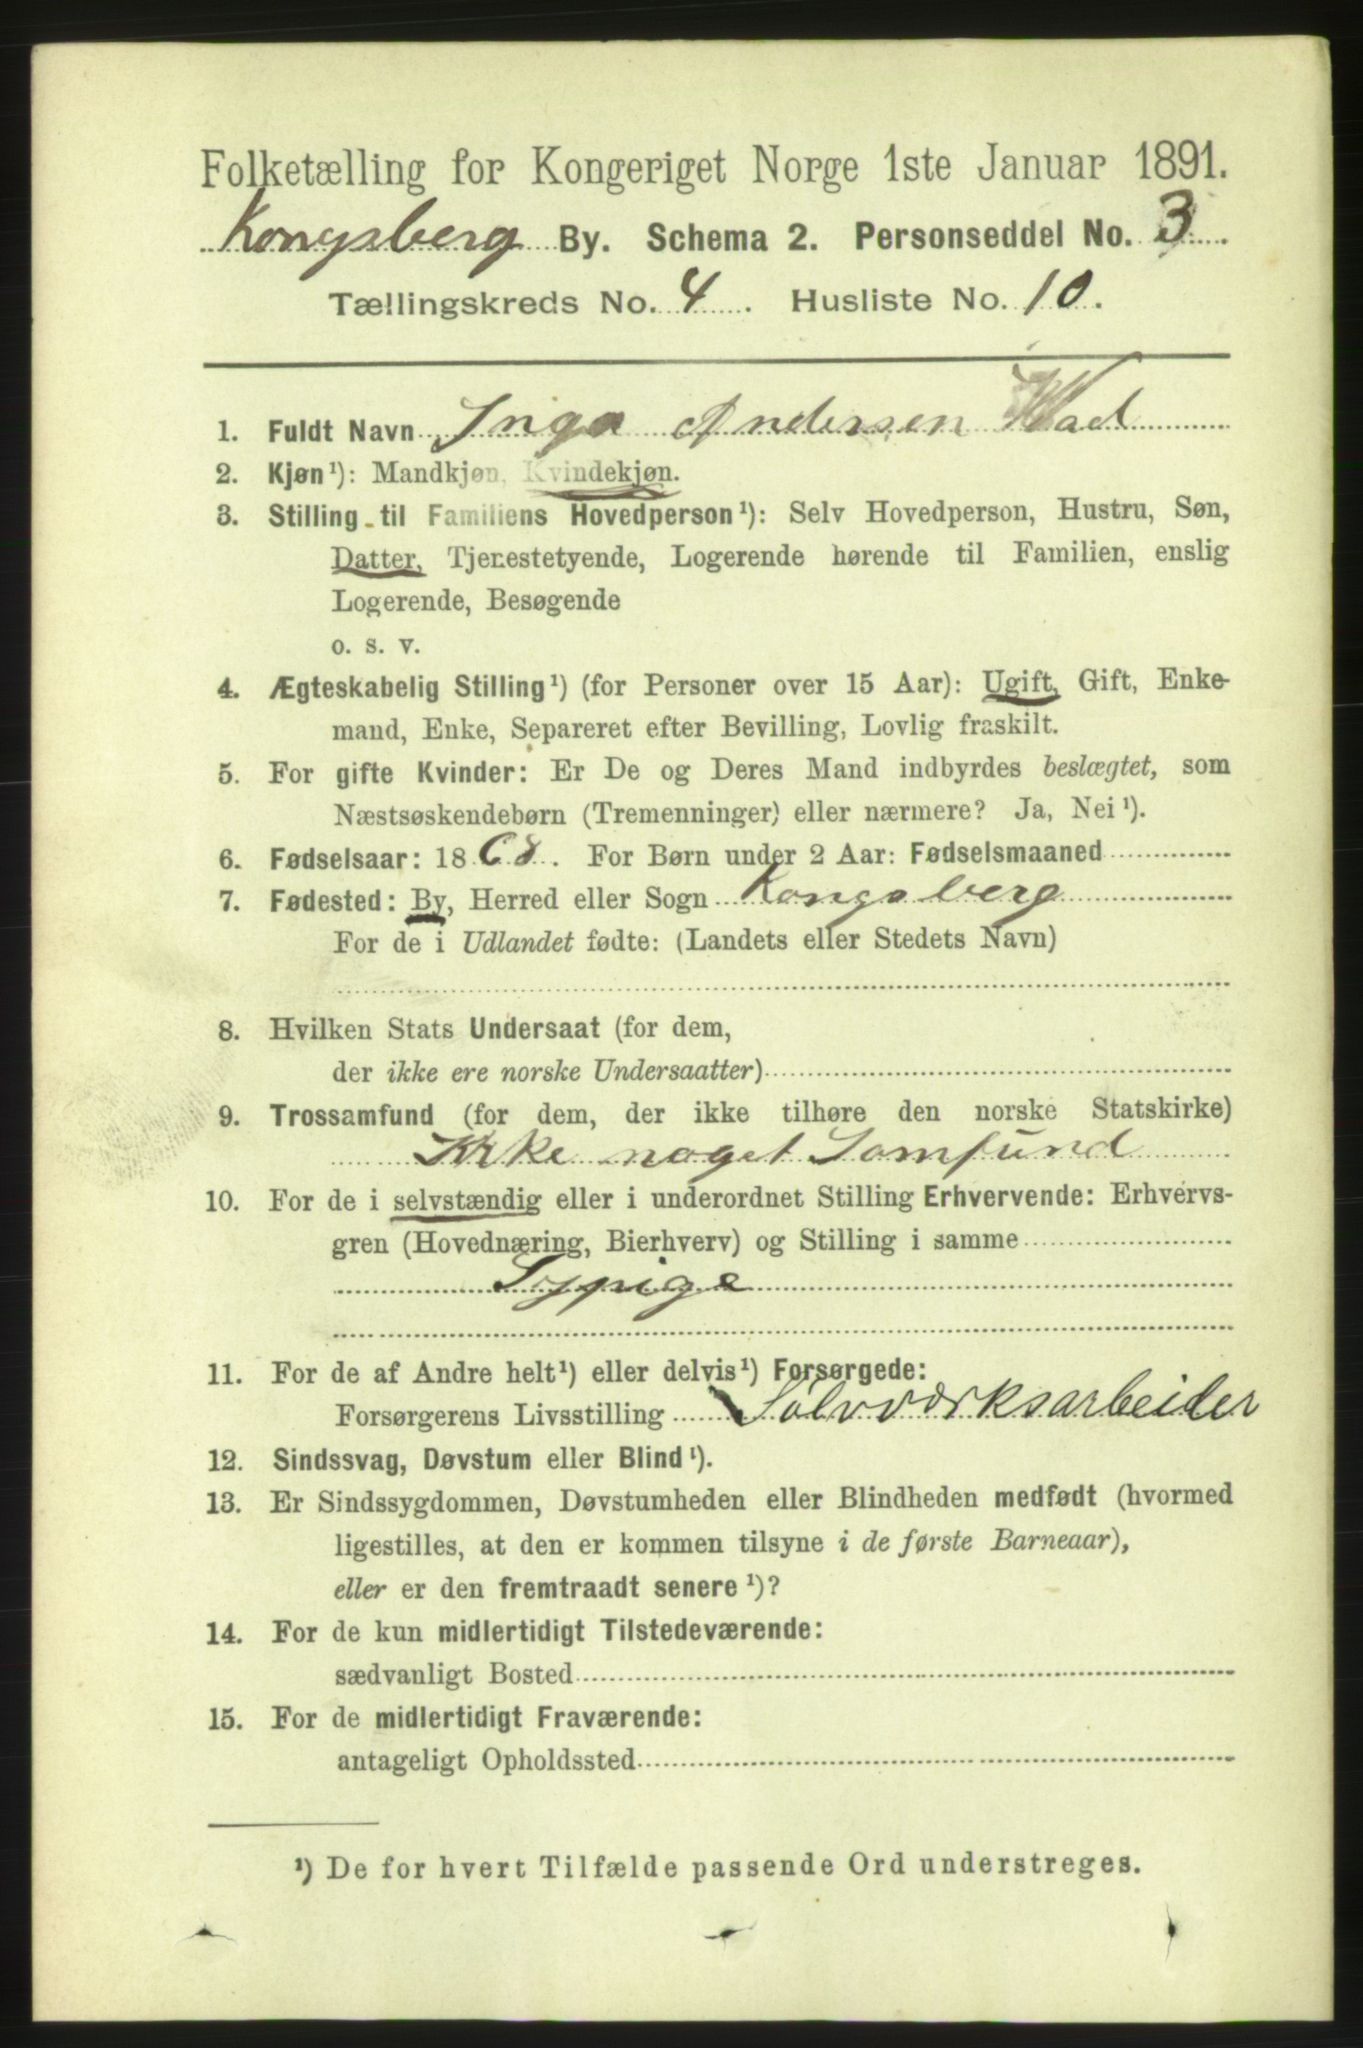 Folketælling for Kongeriget Norge 1ste Januar 1891.
Kongsberg By. Schema 2. Personseddel No. 3.
Tællingskreds No. 4. Husliste No. 10.
1. Fuldt Navn Inga Andersen Wad
2. Kjøn¹): Mandkjøn, Kvindekjøn.
3. Stilling til Familiens Hovedperson¹): Selv Hovedperson, Hustru, Søn,
Datter, Tjenestetyende, Logerende hørende til Familien, enslig
Logerende, Besøgende
o. s. v.
4. Ægteskabelig Stilling¹) (for Personer over 15 Aar): Ugift, Gift, Enke-
mand, Enke, Separeret efter Bevilling, Lovlig fraskilt.
5. For gifte Kvinder: Er De og Deres Mand indbyrdes beslægtet, som
Næstsøskendebørn (Tremenninger) eller nærmere? Ja, Nei¹).
6. Fødselsaar: 1868. For Børn under 2 Aar: Fødselsmaaned
7. Fødested: By, Herred eller Sogn Kongsberg
For de i Udlandet fødte: (Landets eller Stedets Navn)
8. Hvilken Stats Undersaat (for dem,
der ikke ere norske Undersaatter)
9. Trossamfund (for dem, der ikke tilhøre den norske Statskirke)
Ikke noget Samfund
10. For de i selvstændig eller i underordnet Stilling Erhvervende: Erhvervs-
gren (Hovednæring, Bierhverv) og Stilling i samme
Sypige
11. For de af Andre helt¹) eller delvis¹) Forsørgede:
Forsørgerens Livsstilling Sølvværksarbeider
12. Sindssvag, Døvstum eller Blind¹).
13. Er Sindssygdommen, Døvstumheden eller Blindheden medfødt (hvormed
ligestilles, at den er kommen tilsyne i de første Barneaar),
eller er den fremtraadt senere¹)?
14. For de kun midlertidigt Tilstedeværende:
sædvanligt Bosted
15. For de midlertidigt Fraværende:
antageligt Opholdssted
¹) De for hvert Tilfælde passende Ord understreges.